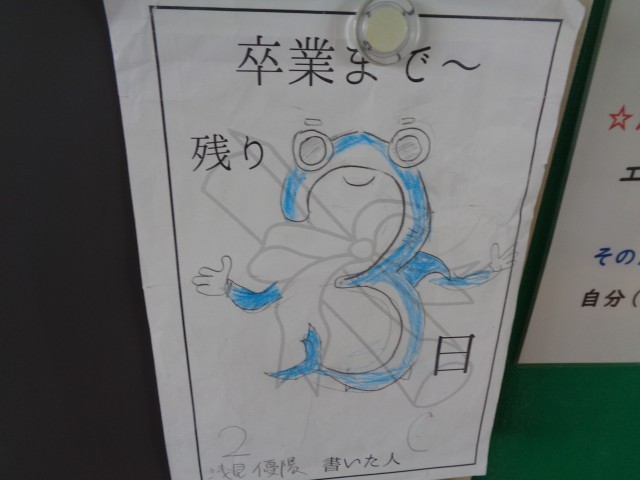 卒業まで～
残り
3
日
2 C
浅見 優陽 書いた人
☆
エ
その
自分（